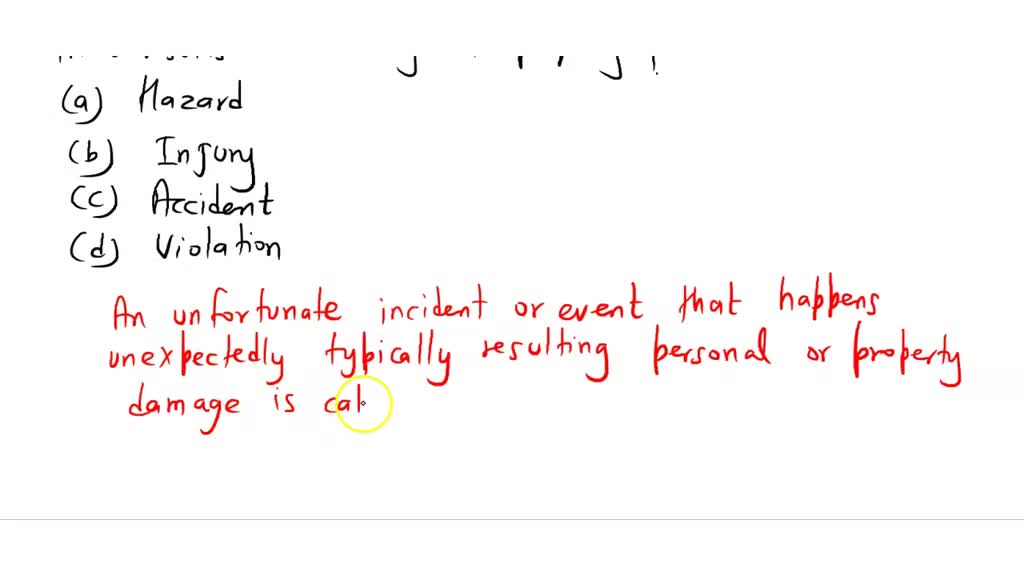 (a) Hazard
(b) Injury
(c) Accident
(d) Violation
An unfortunate incident or event that happens
unexpectedly typically resulting personal or property
damage is cal